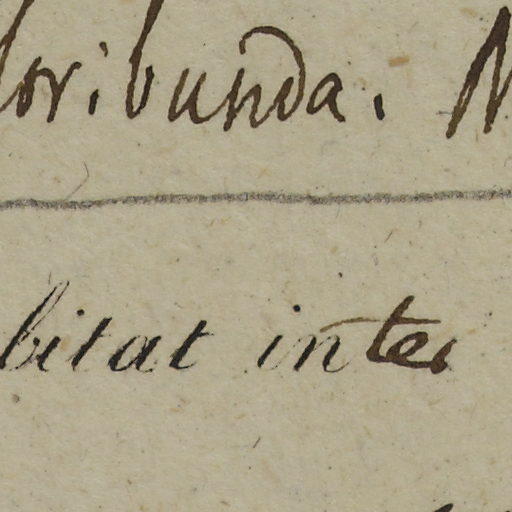 loribunda. N
bitat inter